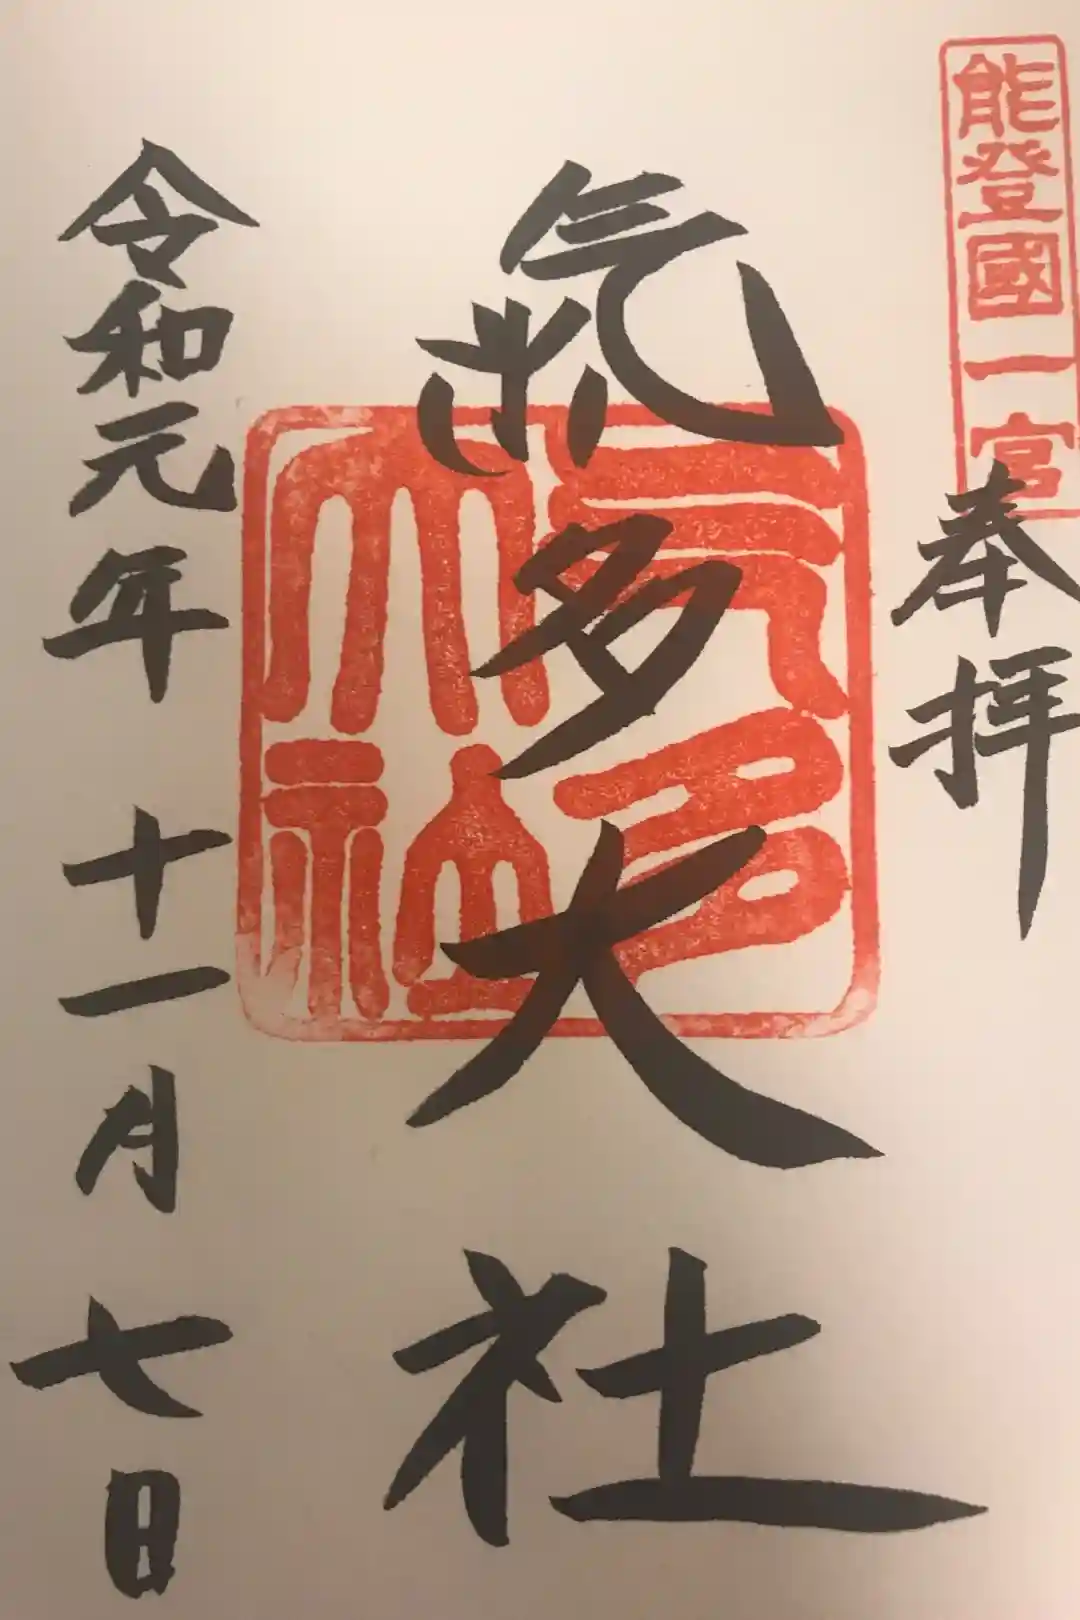 能登國一宮
奉拝
氣多大社
気多大社
令和元年十一月七日